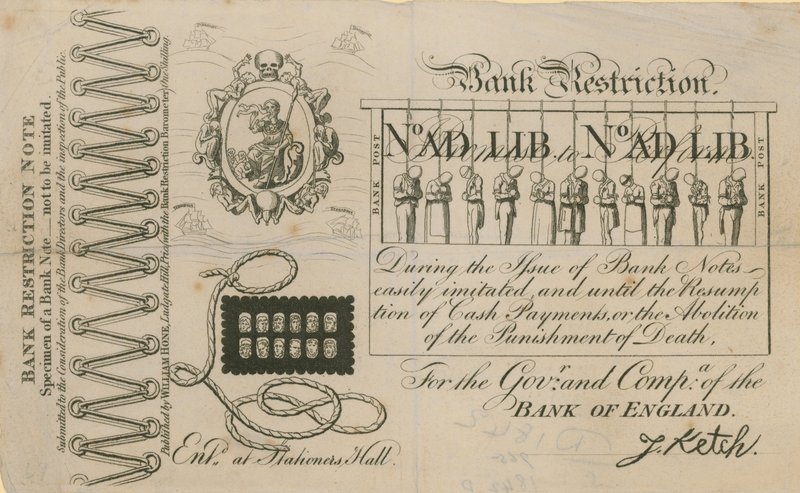 BANK RESTRICTION NOTE
Specimen of a Bank Note — not to be imitated.
Submitted to the Consideration of the Bank Directors and the inspection of the Public.
Published by WILLIAM HONE, Ludgate Hill, Price with the Bank Restriction Barometer, One Shilling.
Bank Restriction.
BANK POST
No. AD LIB. No. AD LIB.
to Perform
BANK POST
During the Issue of Bank Notes
easily imitated, and until the Resump
tion of Cash Payments, or the Abolition
of the Punishment of Death,
For the Govr. and Compa. of the
BANK OF ENGLAND.
J. Ketch.
Entd. at Stationers Hall.